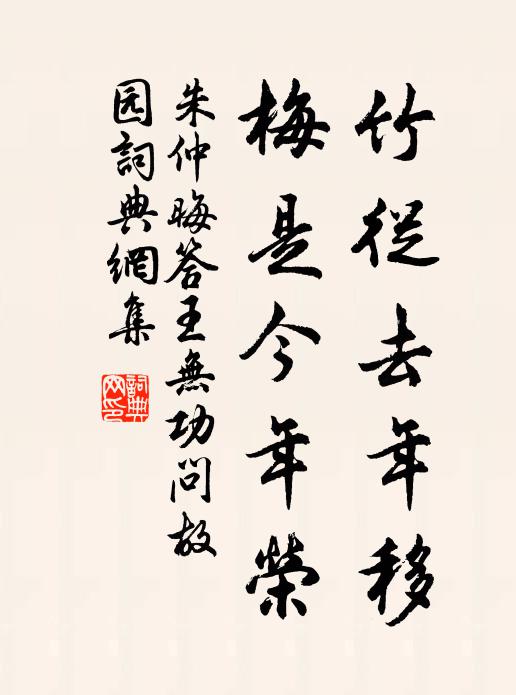 竹從去年移
梅是今年榮
朱仲晦答王無功問故
园詞典網集
詞典网印